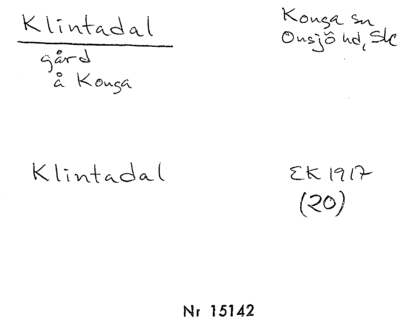 Klintadal
gård
å Konga
Konga sn
Onsjö hd, Sk
Klintadal
EK 1917
(20)
Nr 15142